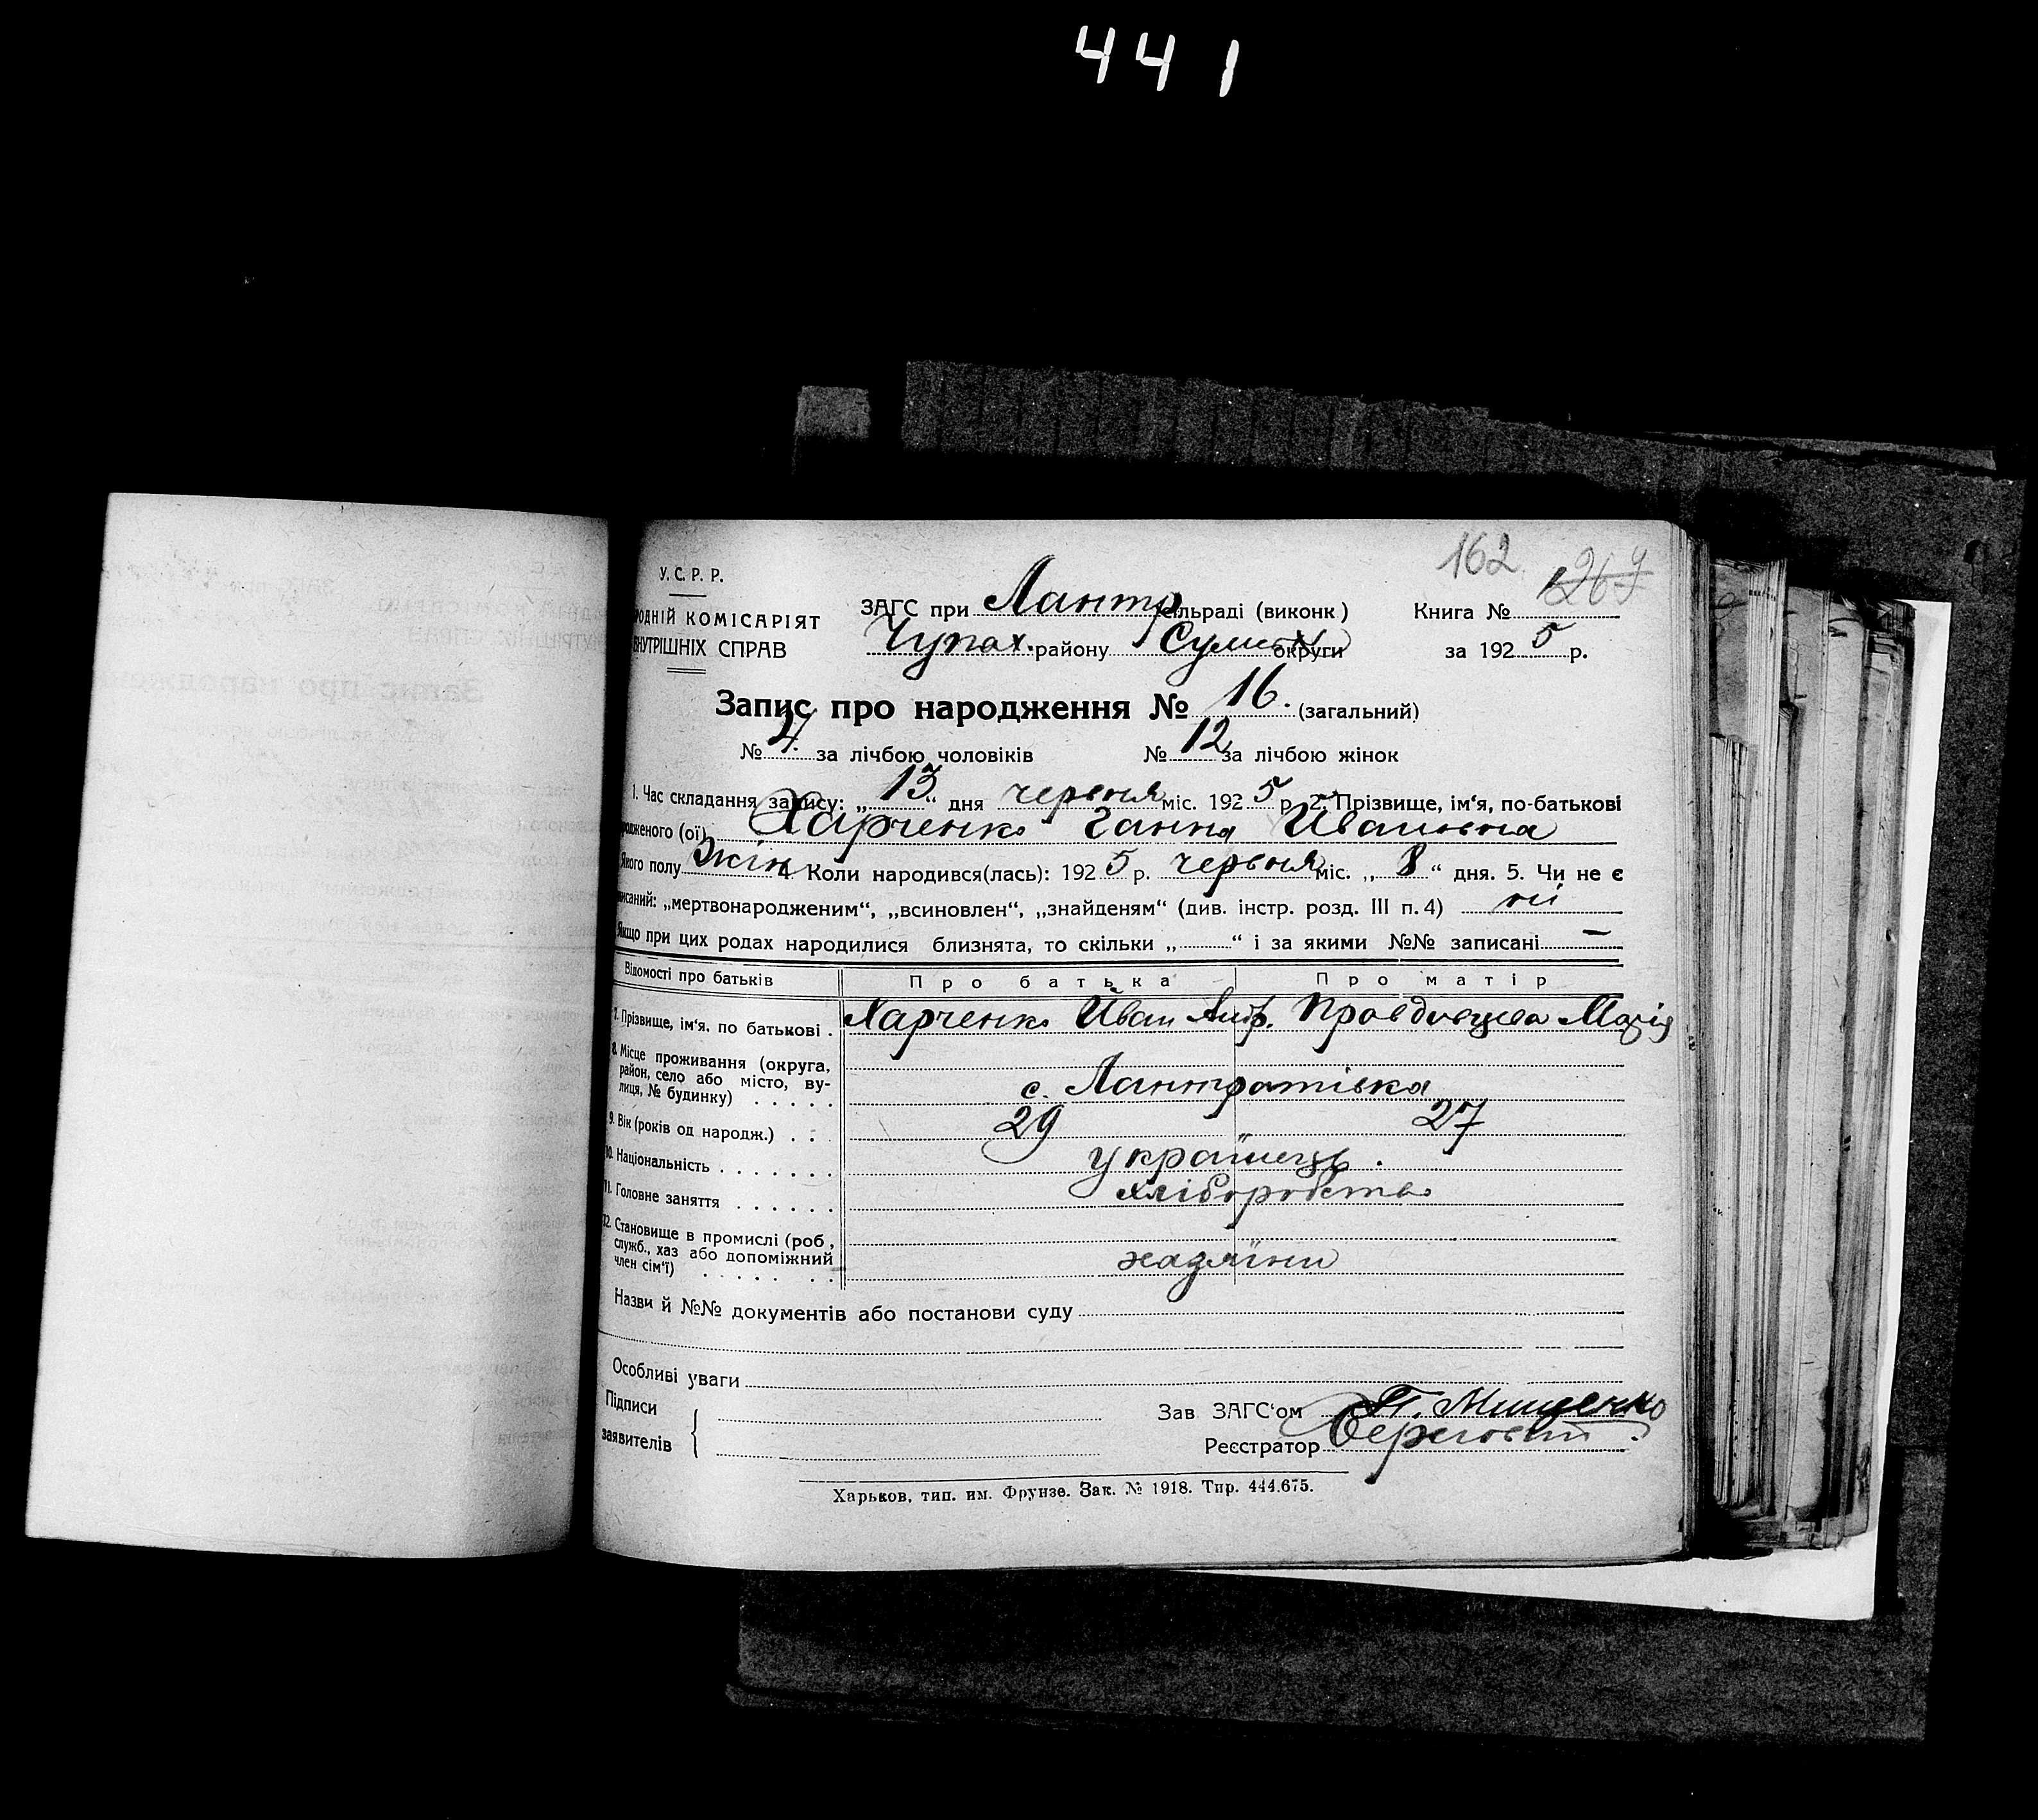 441
162 267
У. С. Р. Р.
РОДНІЙ КОМІСАРІЯТ
ВНУТРІШНІХ СПРАВ
ЗАГС при Лантр сільраді (виконк)
Книга №
Чупах. району Сумськ округи
за 1925 р.
Запис про народження № 16. (загальний)
№ 4. за лічбою чоловіків № 12 за лічбою жінок
1. Час складання запису: „13“ дня червня міс. 1925 р. 2. Прізвище, ім‘я, по-батькові
родженого (ої) Харченко Ганна Ивановна
Якого полу жін 4. Коли народився(лась): 1925 р. червня міс. „8“ дня. 5. Чи не є
писаний: „мертвонародженим“, „всиновлен“, „знайденям“ (див. інстр. розд. III п. 4) ні
Якщо при цих родах народилися близнята, то скільки „......“ і за якими №№ записані —
Відомості про батьків Про батька Про матір
7. Прізвище, ім‘я. по батькові . Харченко Иван Марія
8. Місце проживання (округа,
район, село або місто, ву-
лиця, № будинку) . . . . . с. Лантратівка
9. Вік (років од народж.) . . . 29 27
10. Національність . . . . . . . українець.
11. Головне заняття . . . . . . хліборобство
12. Становище в промислі (роб ,
служб., хаз або допоміжний
член сім‘ї) . . . . . . . хазяїни
Назви й №№ документів або постанови суду
Особливі уваги
Підписи
заявителів
Зав ЗАГС‘ом П. Мищенко
Реєстратор
Харьков, тип. им. Фрунзе. Зак. № 1918. Тир. 444.675.